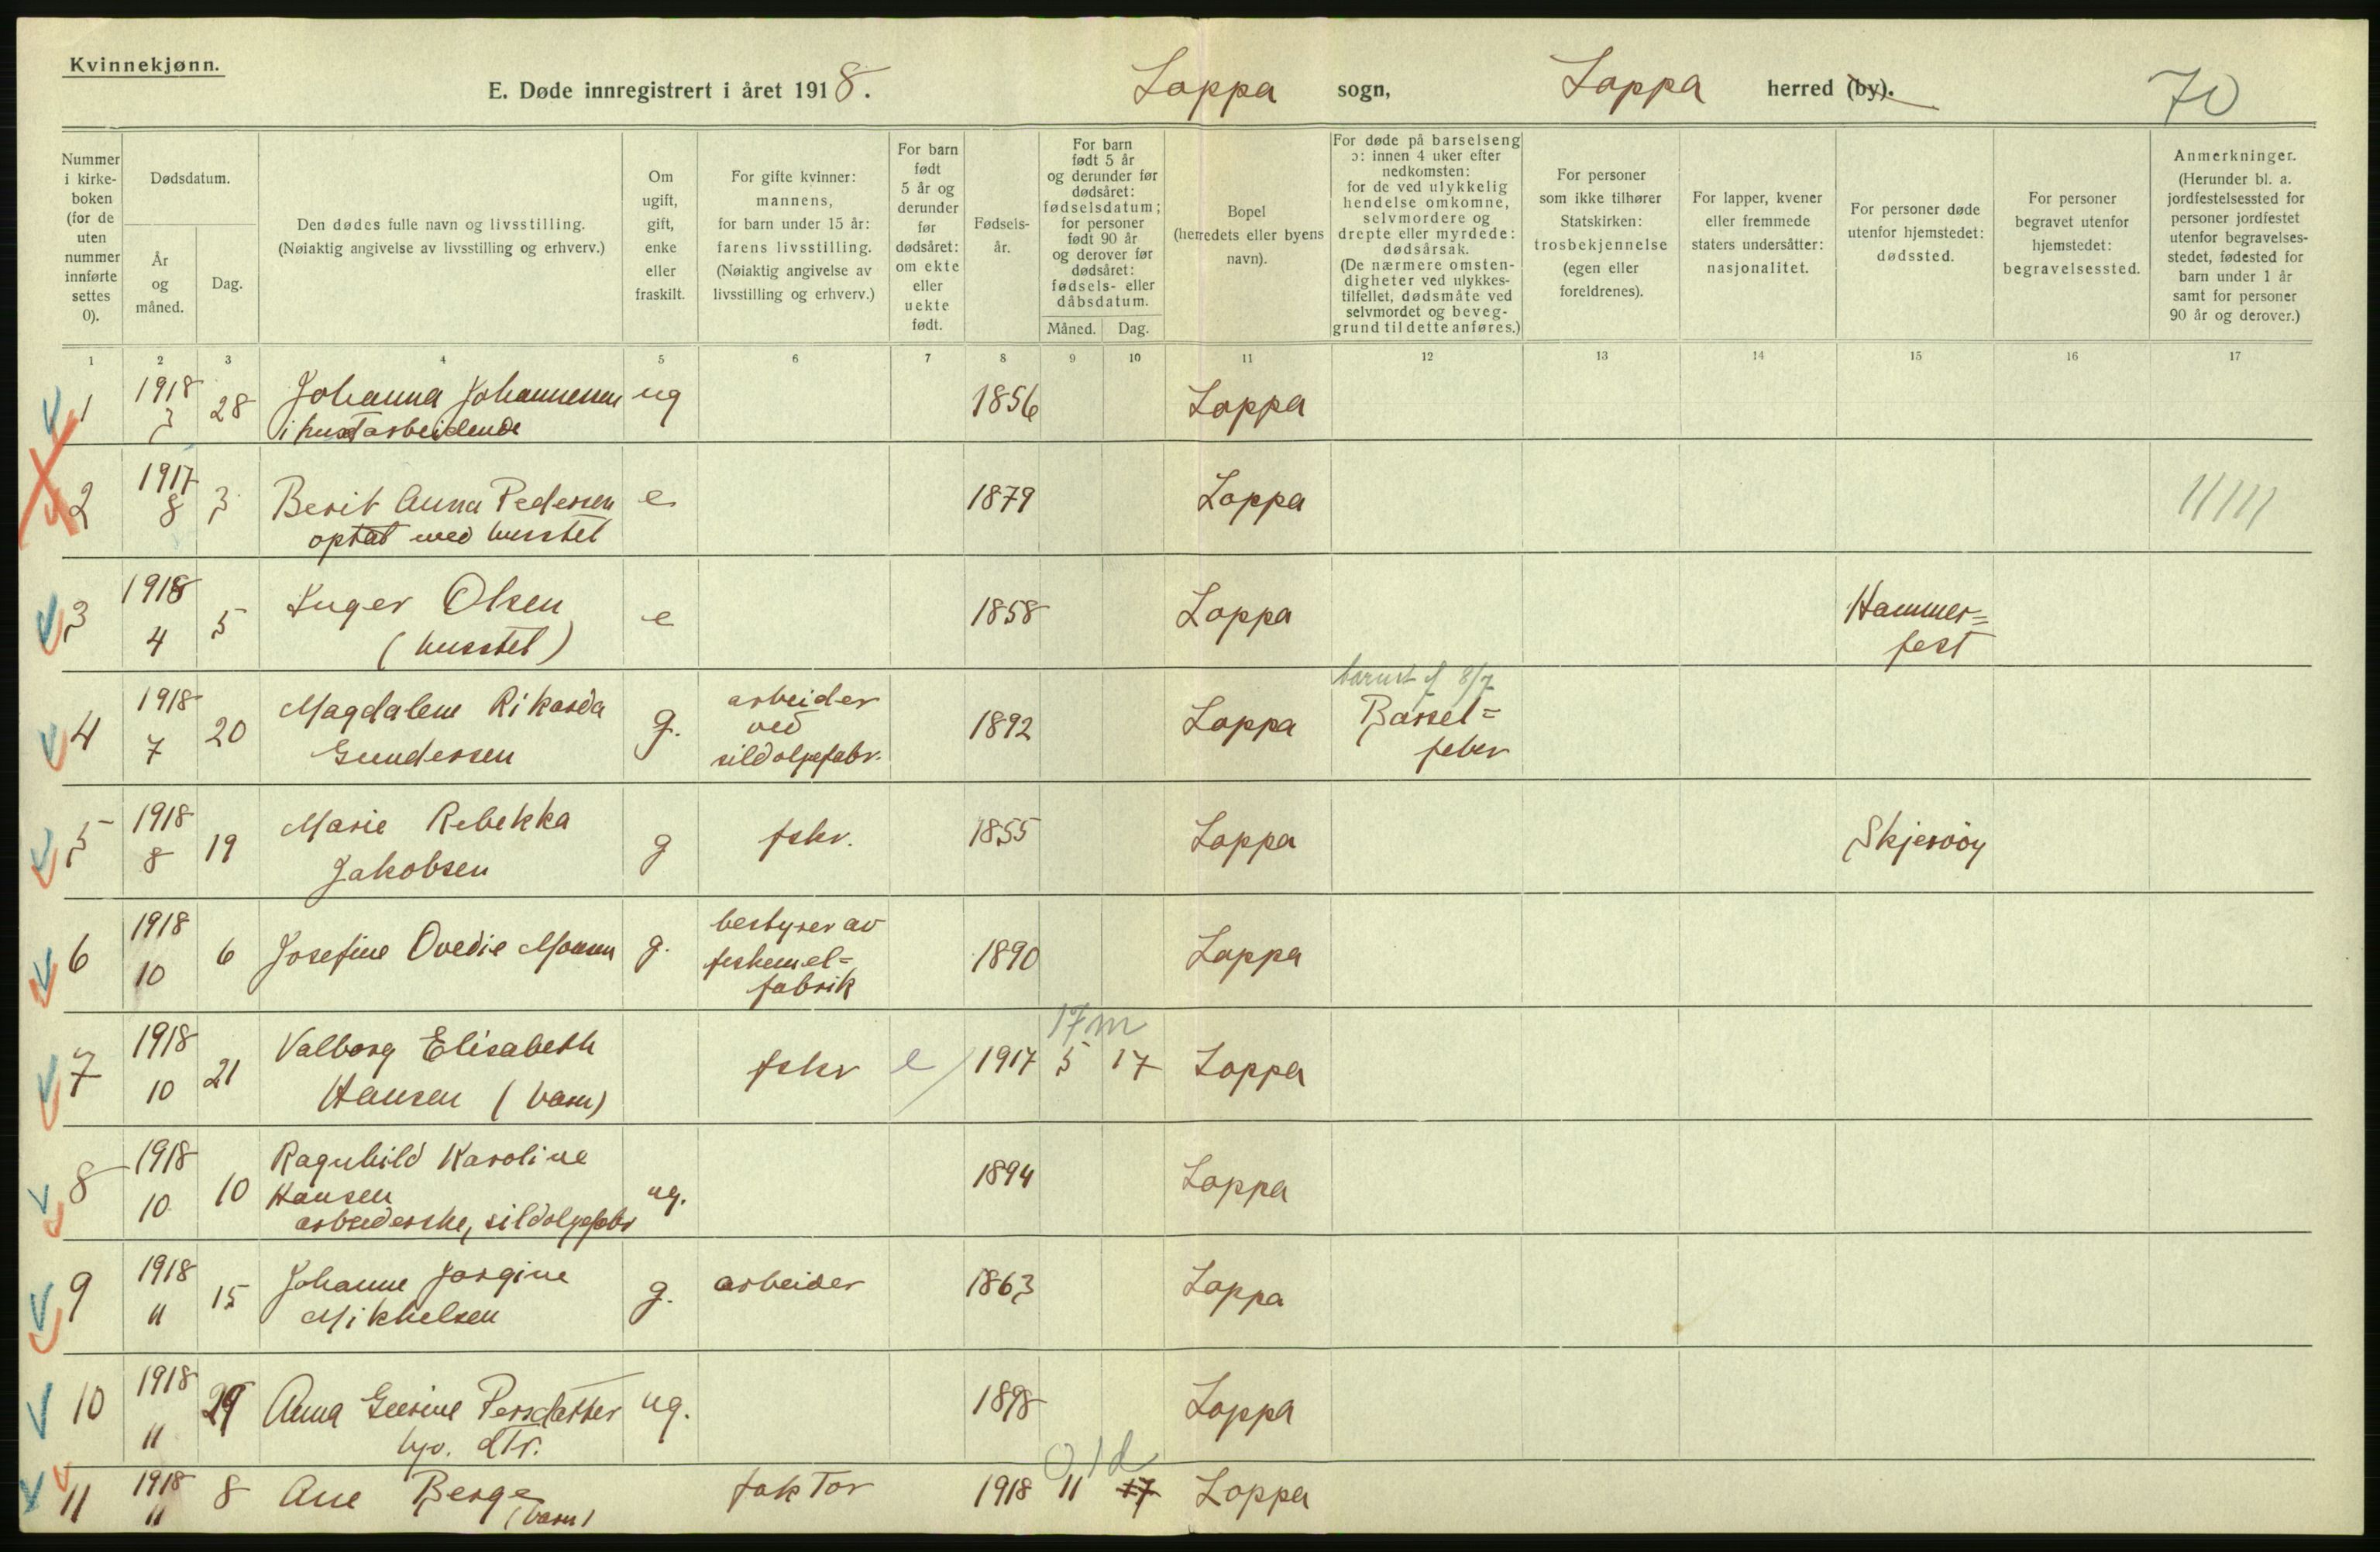 Kvinnekjønn.
E. Døde innregistrert i året 1918. Loppa sogn, Loppa herred (by). 70
Nummer i kirkeboken (for de uten nummer innførte settes 0).
Dødsdatum.
År og måned.
Dag.
Den dødes fulle navn og livsstilling.
(Nøiaktig angivelse av livsstilling og erhverv.)
Om ugift, gift, enke eller fraskilt.
For gifte kvinner: mannens, for barn under 15 år: farens livsstilling. (Nøiaktig angivelse av livsstilling og erhverv.)
For barn født 5 år og derunder før dødsåret: om ekte eller uekte født.
Fødselsår.
For barn født 5 år og derunder før dødsåret: fødselsdatum; for personer født 90 år og derover før dødsåret: fødsels- eller dåbsdatum.
Måned. Dag.
Bopel (herredets eller byens navn).
For døde på barselseng ɔ: innen 4 uker efter nedkomsten: for de ved ulykkelig hendelse omkomne, selvmordere og drepte eller myrdede: dødsårsak. (De nærmere omstendigheter ved ulykkestilfellet, dødsmåte ved selvmordet og beveggrund til dette anføres.)
For personer som ikke tilhører Statskirken: trosbekjennelse (egen eller foreldrenes).
For lapper, kvener eller fremmede staters undersåtter: nasjonalitet.
For personer døde utenfor hjemstedet: dødssted.
For personer begravet utenfor hjemstedet: begravelsessted.
Anmerkninger. (Herunder bl. a. jordfestelsessted for personer jordfestet utenfor begravelsesstedet, fødested for barn under 1 år samt for personer 90 år og derover.)
1 2 3 4 5 6 7 8 9 10 11 12 13 14 15 16 17
1 1918 3 28 Johanna Johannesen ug 1856 Loppa
i huset arbeidende
2 1917 8 3 Berit Anna Pedersen e 1879 Loppa
optat med husstel
3 1918 4 5 Inger Olsen e 1858 Loppa Hammer=
(husstel) fest
4 1918 7 20 Magdalene Rikarda g. arbeider 1892 Loppa Barsel=
Gundersen ved sildoljefabr. feber
5 1918 8 19 Marie Rebekka g fskr. 1855 Loppa Skjervöy
Jakobsen
6 1918 10 6 Josefine Ovedie Monsen g. bestyrer av 1890 Loppa
fiskemel=
fabrik
17 m
7 1918 10 21 Valborg Elisabeth fskr e 1917 5 17 Loppa
Hansen (barn)
8 1918 10 10 Ragnhild Karoline ug. 1894 Loppa
Hansen
arbeiderske, sildoljefabr
9 1918 11 15 Johanne Jorgine g. arbeider 1863 Loppa
Mikkelsen
10 1918 11 29 Anna Persdatter ug. 1898 Loppa
hjv. dtr.
0 1 d
11 1918 11 8 Ane Berge faktor 1918 11 17 Loppa
(barn)